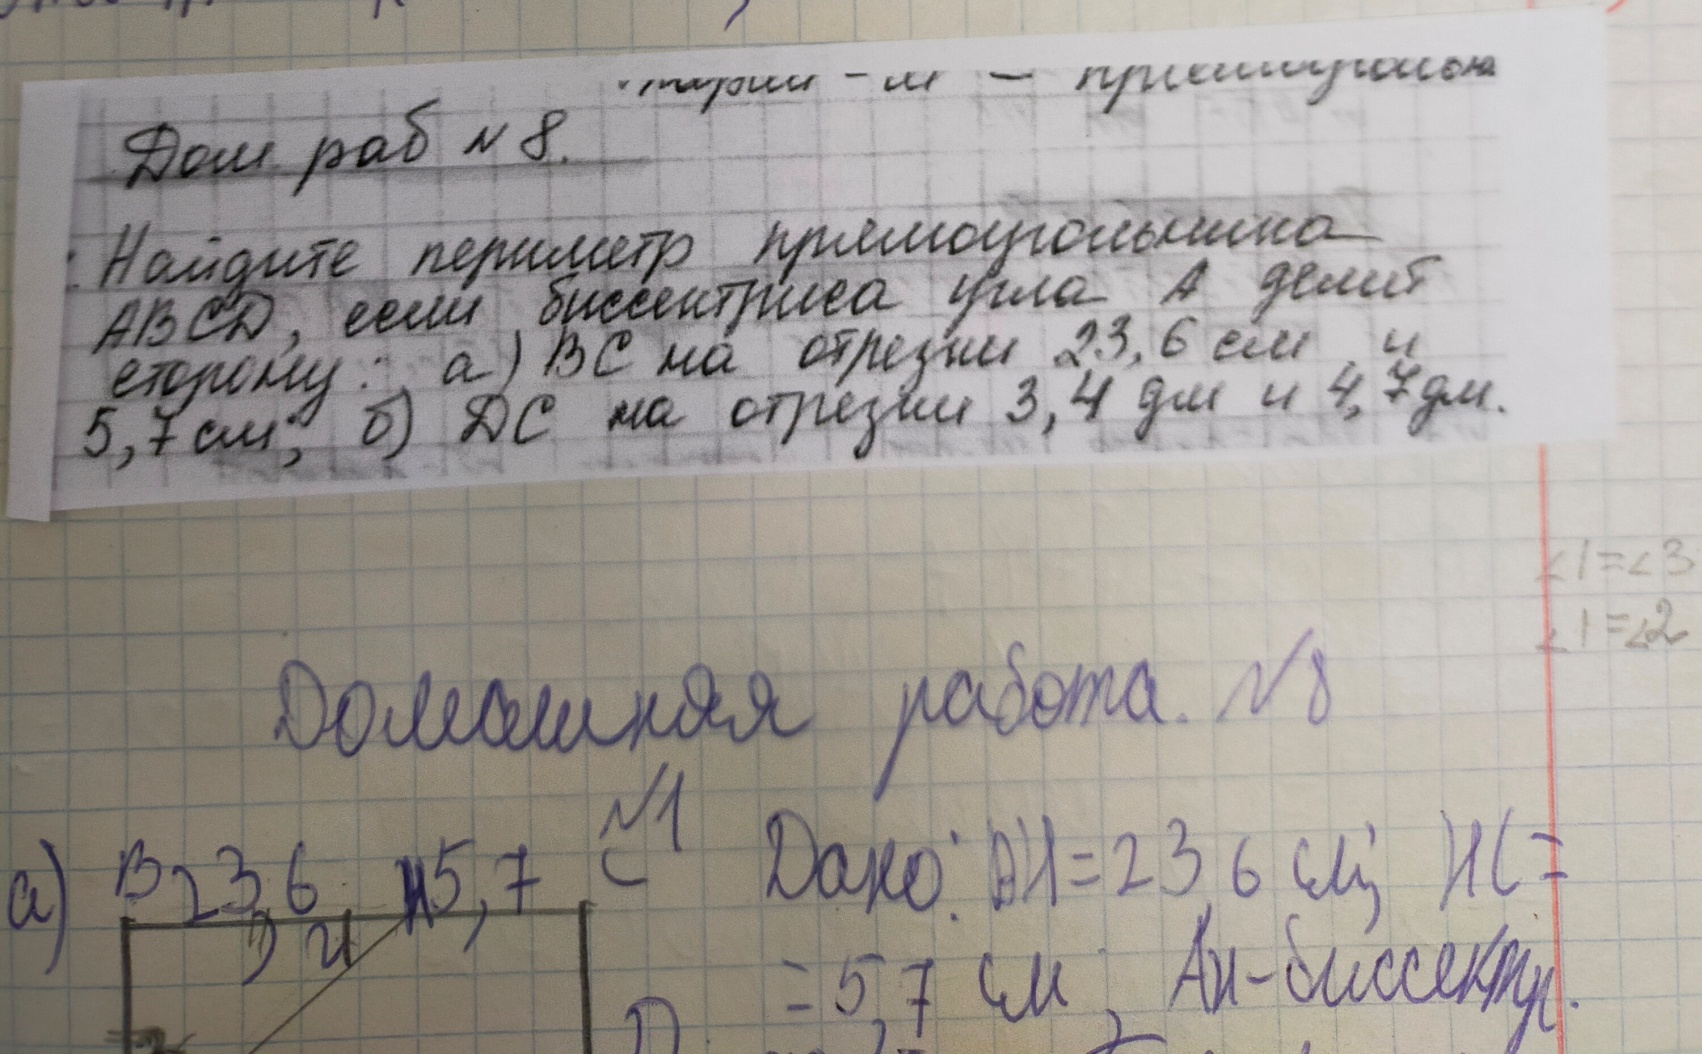 Дом раб № 8.
Найдите периметр прямоугольника
ABCD, если биссектриса угла A делит
сторону: а) BC на отрезки 23,6 см и
5,7 см; б) DC на отрезки 3,4 дм и 4,7 дм.
∠1=∠3
∠1=∠2
Домашняя работа. №8
№1
а) B 23,6 H 5,7 C Дано: BH=23,6 см; HC=
=5,7 см; AH-биссектр.